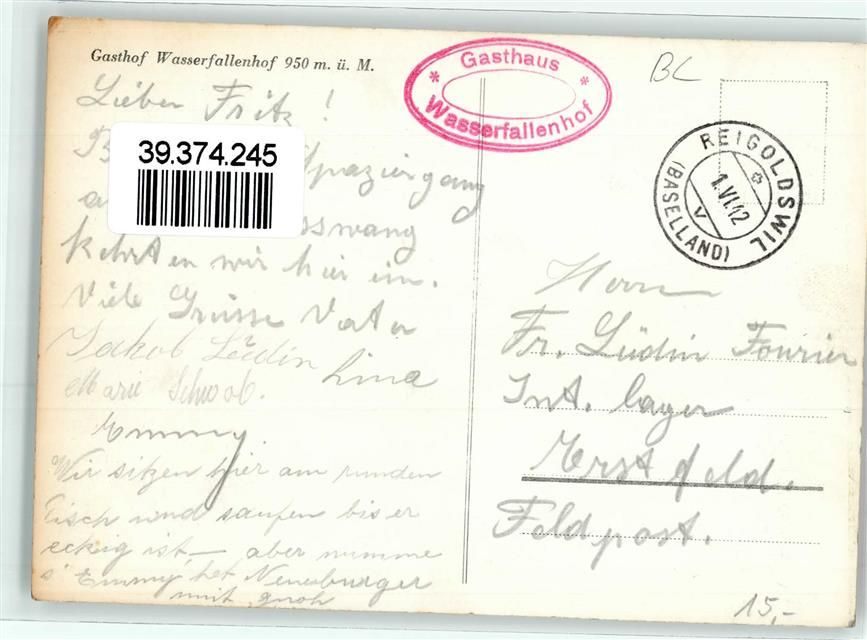 Gasthof Wasserfallenhof 950 m. ü. M.
Gasthaus
Wasserfallenhof
BL
REIGOLDSWIL
(BASELLAND)
1.VI.42
V
39.374.245
Lieber Fritz!
Spaziergang
kehrten wir hier ein.
Viele Grüsse Vater
Jakob Lüdin Lina
Marie Schwob.
Emmy.
Wir sitzen hier am runden
Tisch und saufen bis er
eckig ist, — aber numme
s'Emmy het Neueburger
mit gnoh
Herrn
Fr. Lüdin Fourier
Int. Lager
Erstfeld.
Feldpost.
15,-